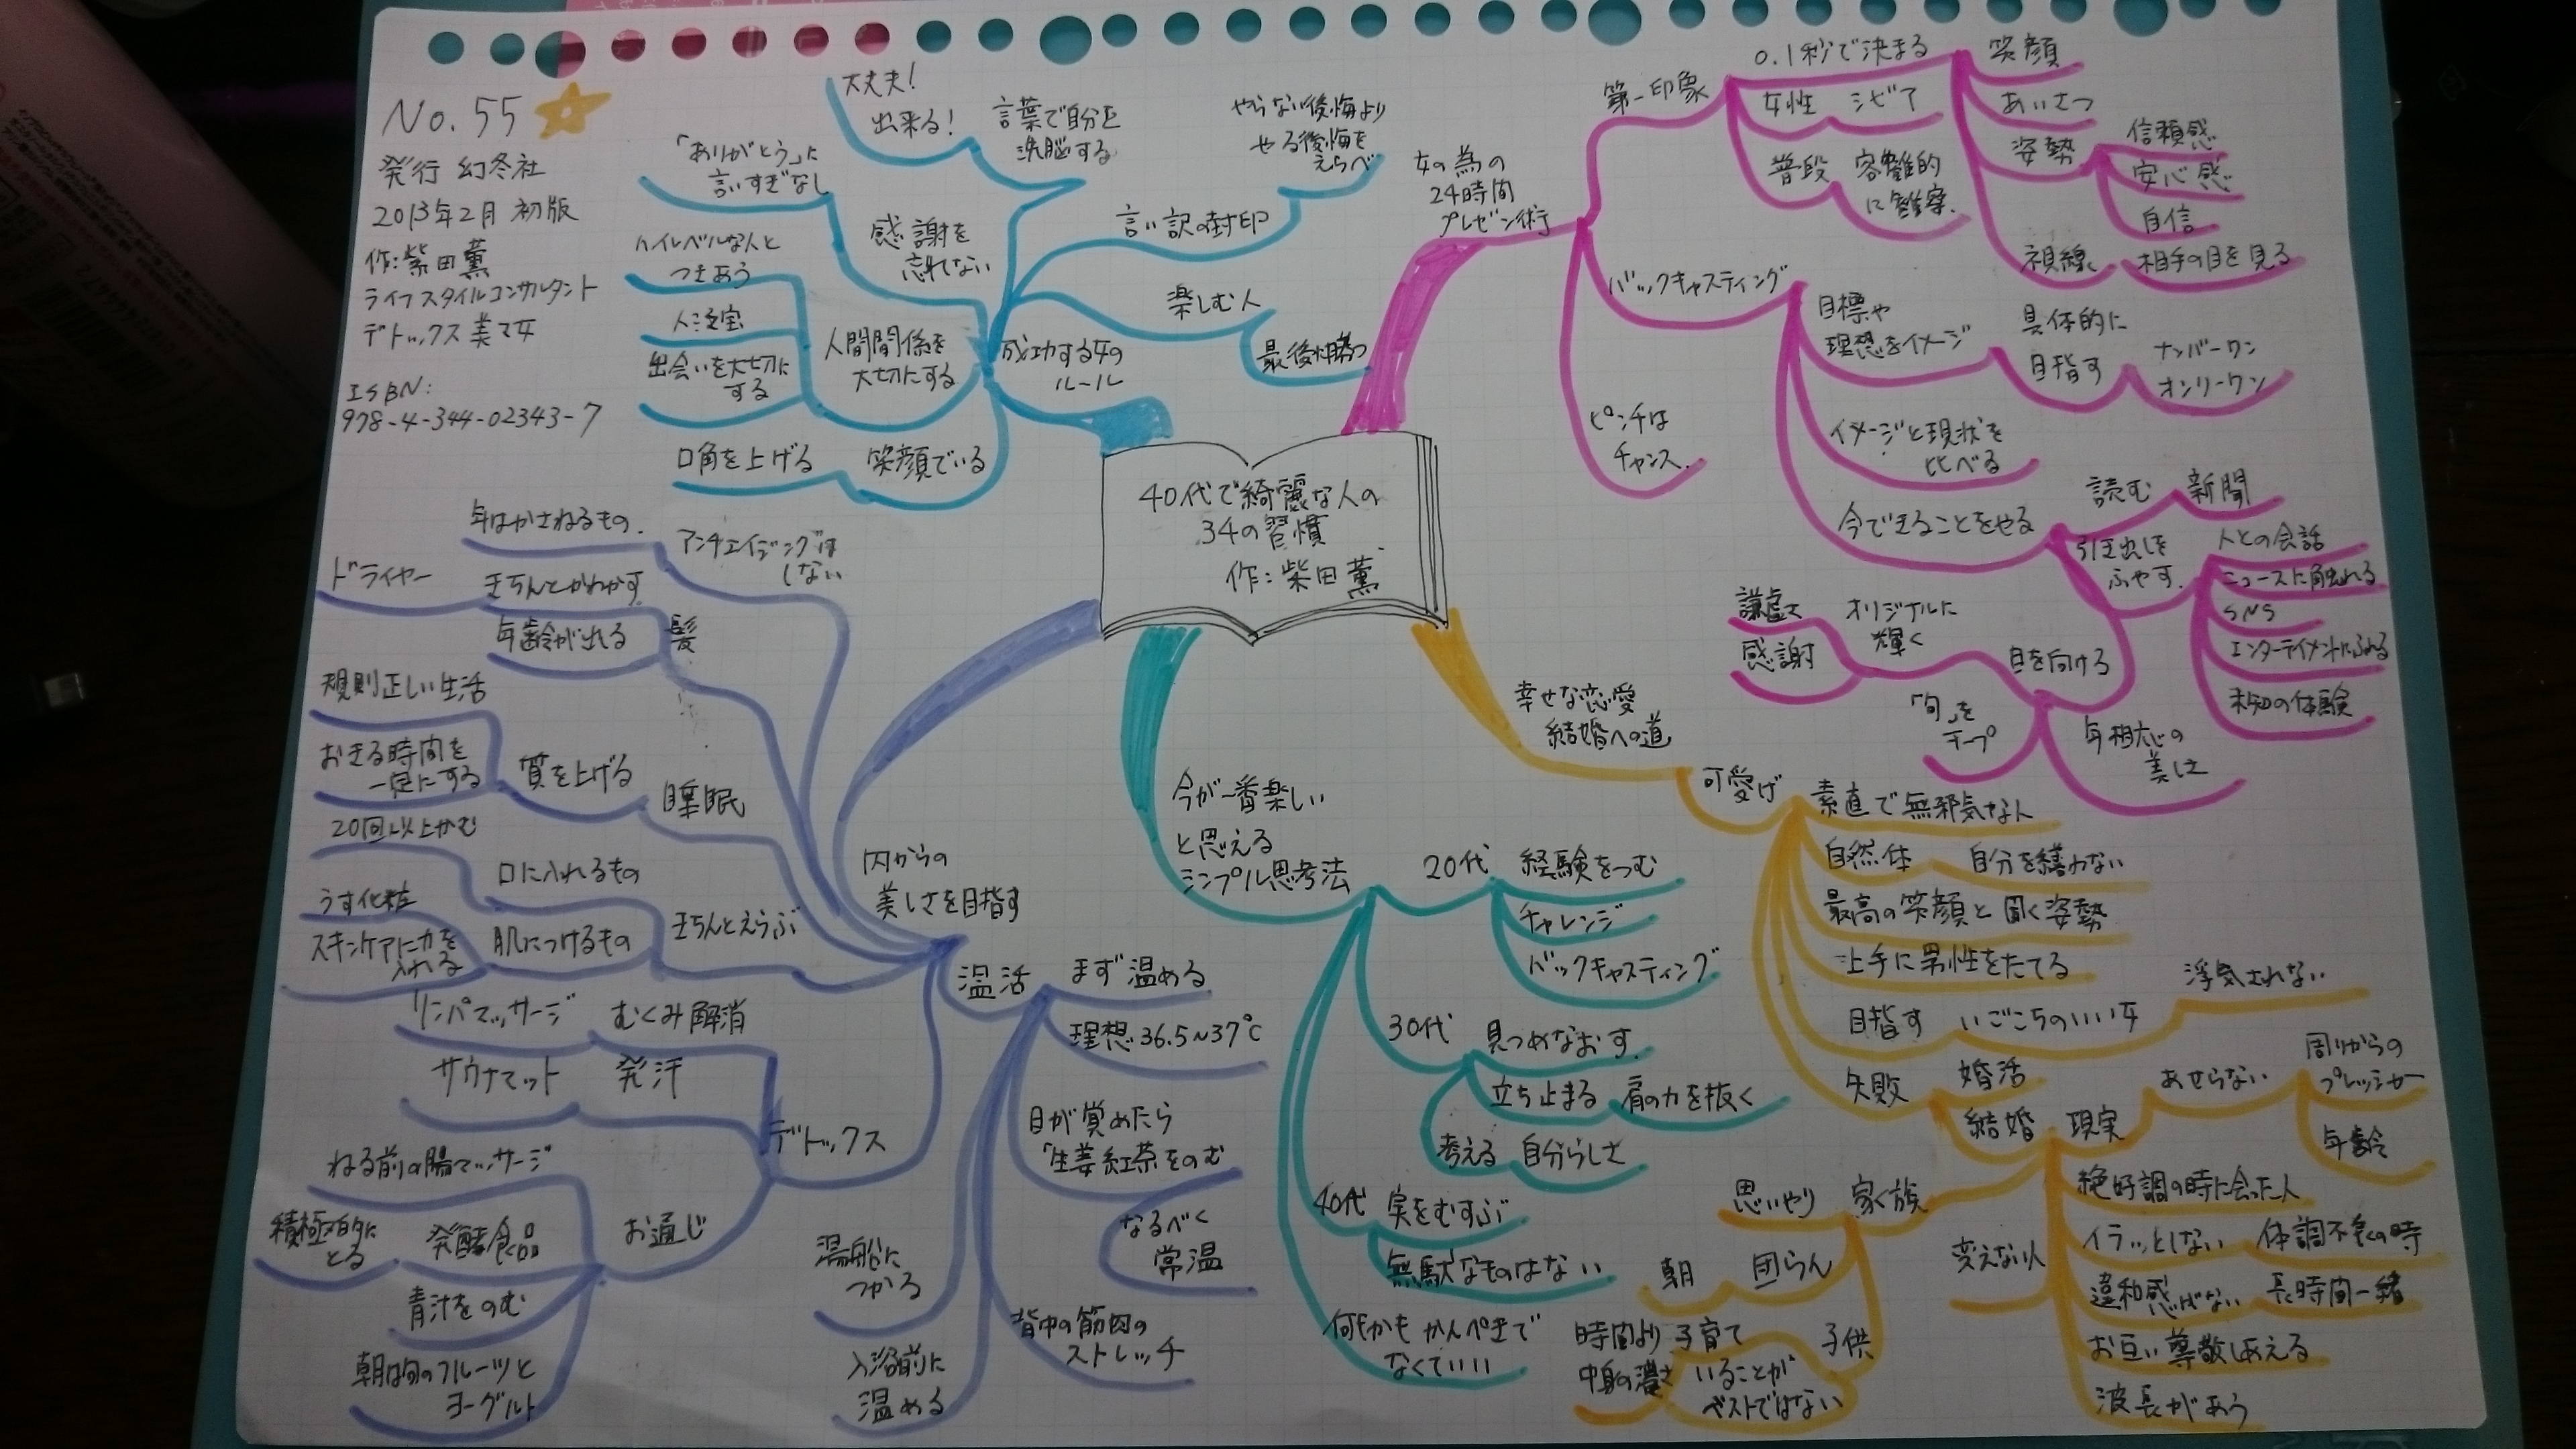 No.55
発行 幻冬社
2013年2月 初版
作:柴田薫
ライフスタイルコンサルタント
デトックス美マ女
ISBN:
978-4-344-02343-7
40代で綺麗な人の
34の習慣
作:柴田薫
女の為の
24時間
プレゼン術
第一印象
0.1秒で決まる
笑顔
あいさつ
姿勢
信頼感
安心感
自信
視線
相手の目を見る
女性 シビア
普段
に観察.
バックキャスティング
目標や
理想をイメージ
具体的に
目指す
ナンバーワン
オンリーワン
イメージと現状を
比べる
今できることをやる
引き出しを
ふやす.
読む
新聞
人との会話
ニュースに触れる
SNS
エンターテイメントにふれる
未知の体験
目を向ける
オリジナルに
輝く
謙虚さ
感謝
「旬」を
年相応の
美しさ
ピンチは
チャンス.
幸せな恋愛
結婚への道
可愛げ
素直で無邪気な人
自然体
自分を繕わない
最高の笑顔と聞く姿勢
上手に男性をたてる
目指す
いごこちのいい女
浮気されない
失敗
婚活
結婚
現実
あせらない
周りからの
プレッシャー
年齢
絶好調の時に会った人
イラッとしない
体調不良の時
違和感がない
長時間一緒
お互い尊敬しあえる
波長があう
変えない
家族
思いやり
団らん
朝
子供
子育て
いることが
ベストではない
時間より
中身の濃さ
今が一番楽しい
と思える
シンプル思考法
20代
経験をつむ
チャレンジ
バックキャスティング
30代
見つめなおす.
立ち止まる
肩の力を抜く
考える
自分らしさ
40代
実をむすぶ
無駄なものはない
何もかもかんぺきで
なくていい
内からの
美しさを目指す
アンチエイジングは
しない
年はかさねるもの.
髪
きちんとかわかす
ドライヤー
年齢が出れる
睡眠
質を上げる
規則正しい生活
おきる時間を
一定にする
きちんとえらぶ
口に入れるもの
20回以上かむ
肌につけるもの
うす化粧
スキンケアに力を
入れる
デトックス
むくみ解消
リンパマッサージ
発汗
サウナマット
お通じ
ねる前の腸マッサージ
発酵食品
積極的に
とる
青汁をのむ
朝は旬のフルーツと
ヨーグルト
温活
まず温める
理想36.5~37℃
目が覚めたら
生姜紅茶をのむ
なるべく
常温
背中の筋肉の
ストレッチ
湯船に
つかる
入浴前に
温める
成功する女の
ルール
言葉で自分を
洗脳する
大丈夫!
出来る!
言い訳の封印
やらない後悔より
やる後悔を
えらべ
楽しむ人
最後は勝つ
感謝を
忘れない
「ありがとう」に
言いすぎなし
人間関係を
大切にする
ハイレベルな人と
つきあう
人は宝
出会いを大切に
する
笑顔でいる
口角を上げる